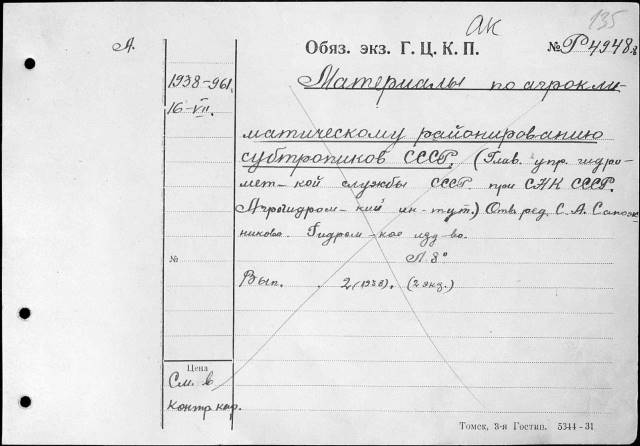 АК
135
А.
Обяз. экз. Г. Ц. К. П.
№ Р4948
1938-961.
16-VII.
Материалы по агрокли-
матическому районированию
субтропиков СССР. (Глав. упр. гидро-
мет-кой службы СССР при СНК СССР.
Агрогидром-кий ин-тут.) Отв. ред. С. А. Сапож-
никова. Гидром-кое изд-во.
Л. 8°
№
Вып. 2 (1938). (2 экз.)
Цена
См. в
контр. кар.
Томск, 3-я Гостип. 5344-31